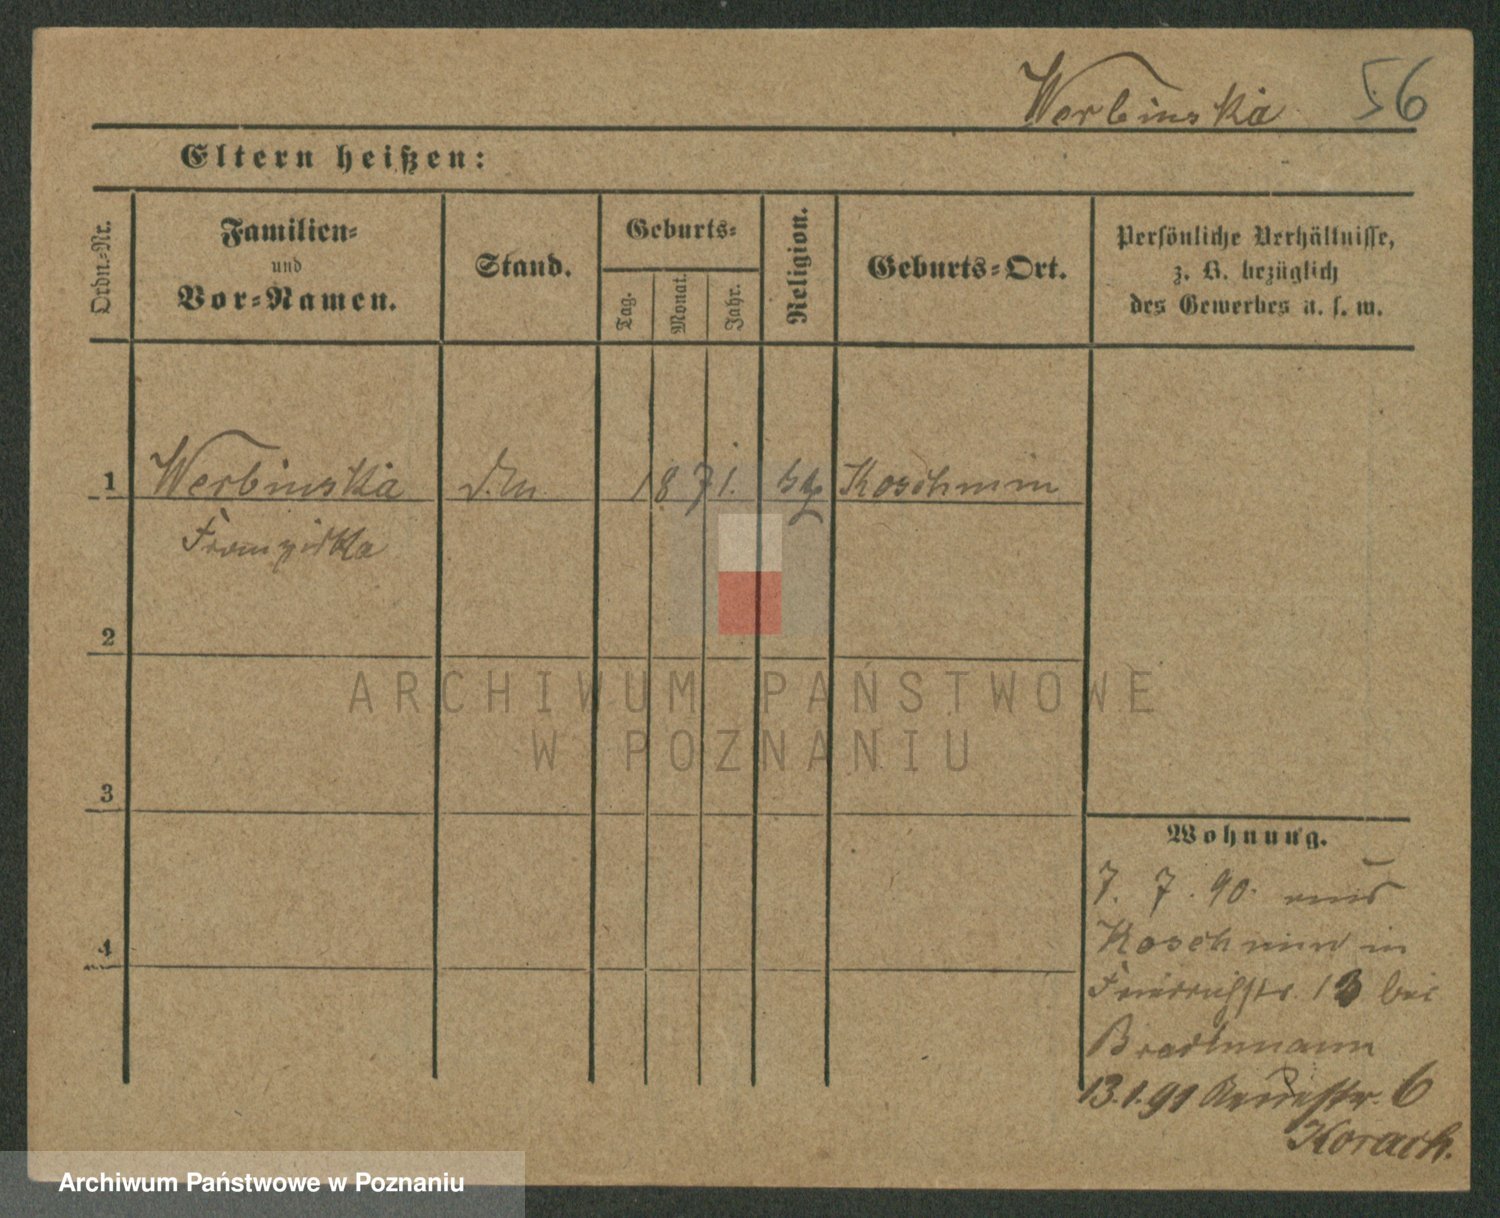 Werbinska 56
Eltern heißen:
Ordn.-Nr.
Familien-
und
Vor-Namen.
Stand.
Geburts-
Tag.
Monat.
Jahr.
Religion.
Geburts-Ort.
Persönliche Verhältnisse,
z. B. bezüglich
des Gewerbes u. s. w.
1 Werbinska 1871. Koschmin
2
3
4
Wohnung.
7. 7. 90. aus
Koschmin in
13 bei
13.1.91 6
Korach.
ARCHIWUM PAŃSTWOWE
W POZNANIU
Archiwum Państwowe w Poznaniu